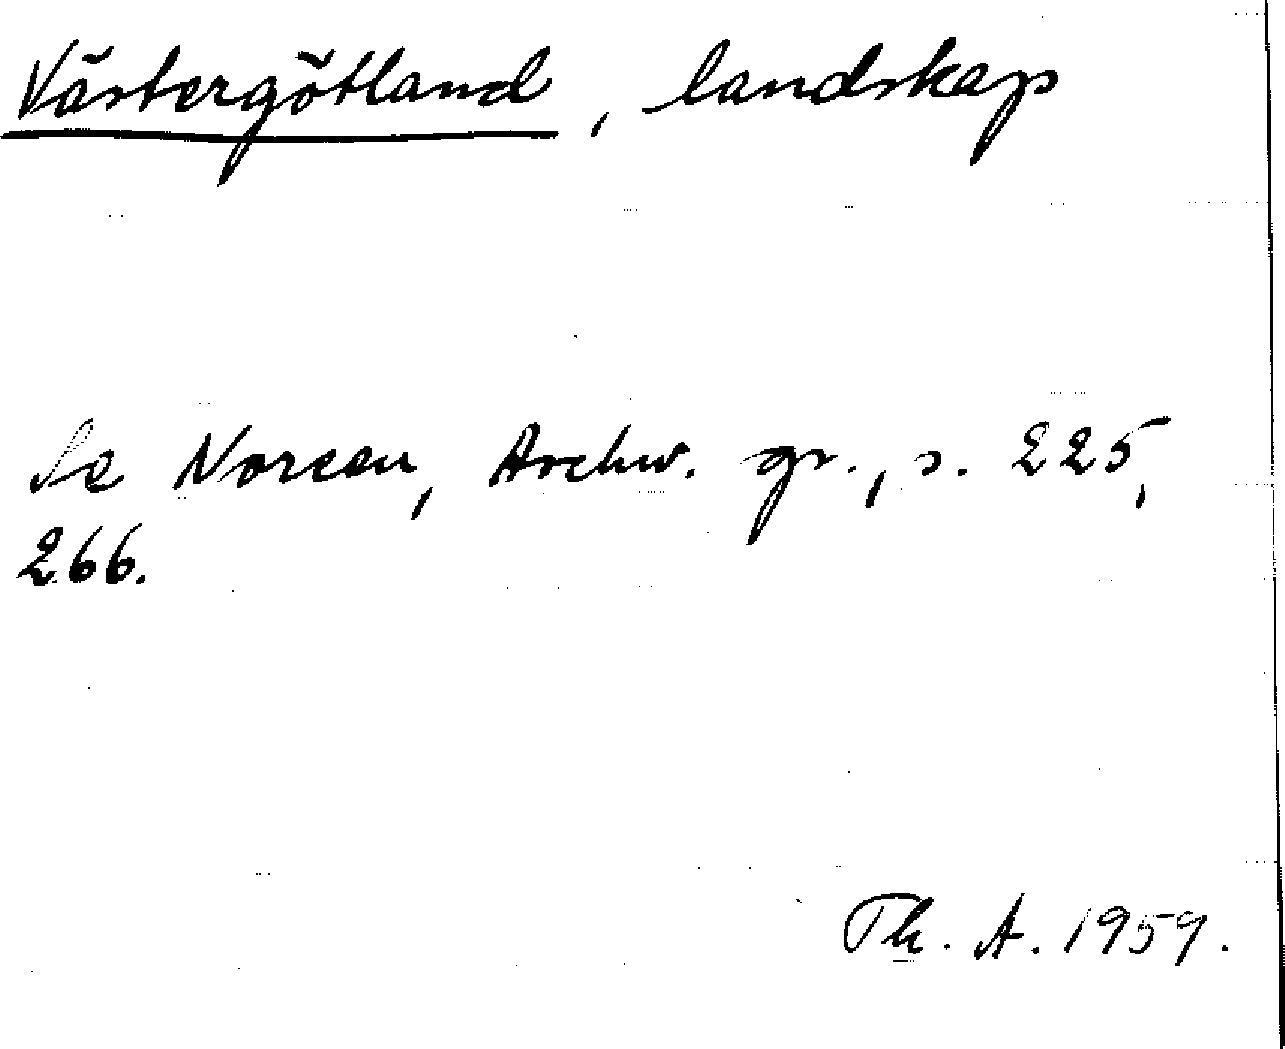 Västergötland, landskap
Se Noreen, Aschw. gr., s. 225,
266.
Th. A. 1959.